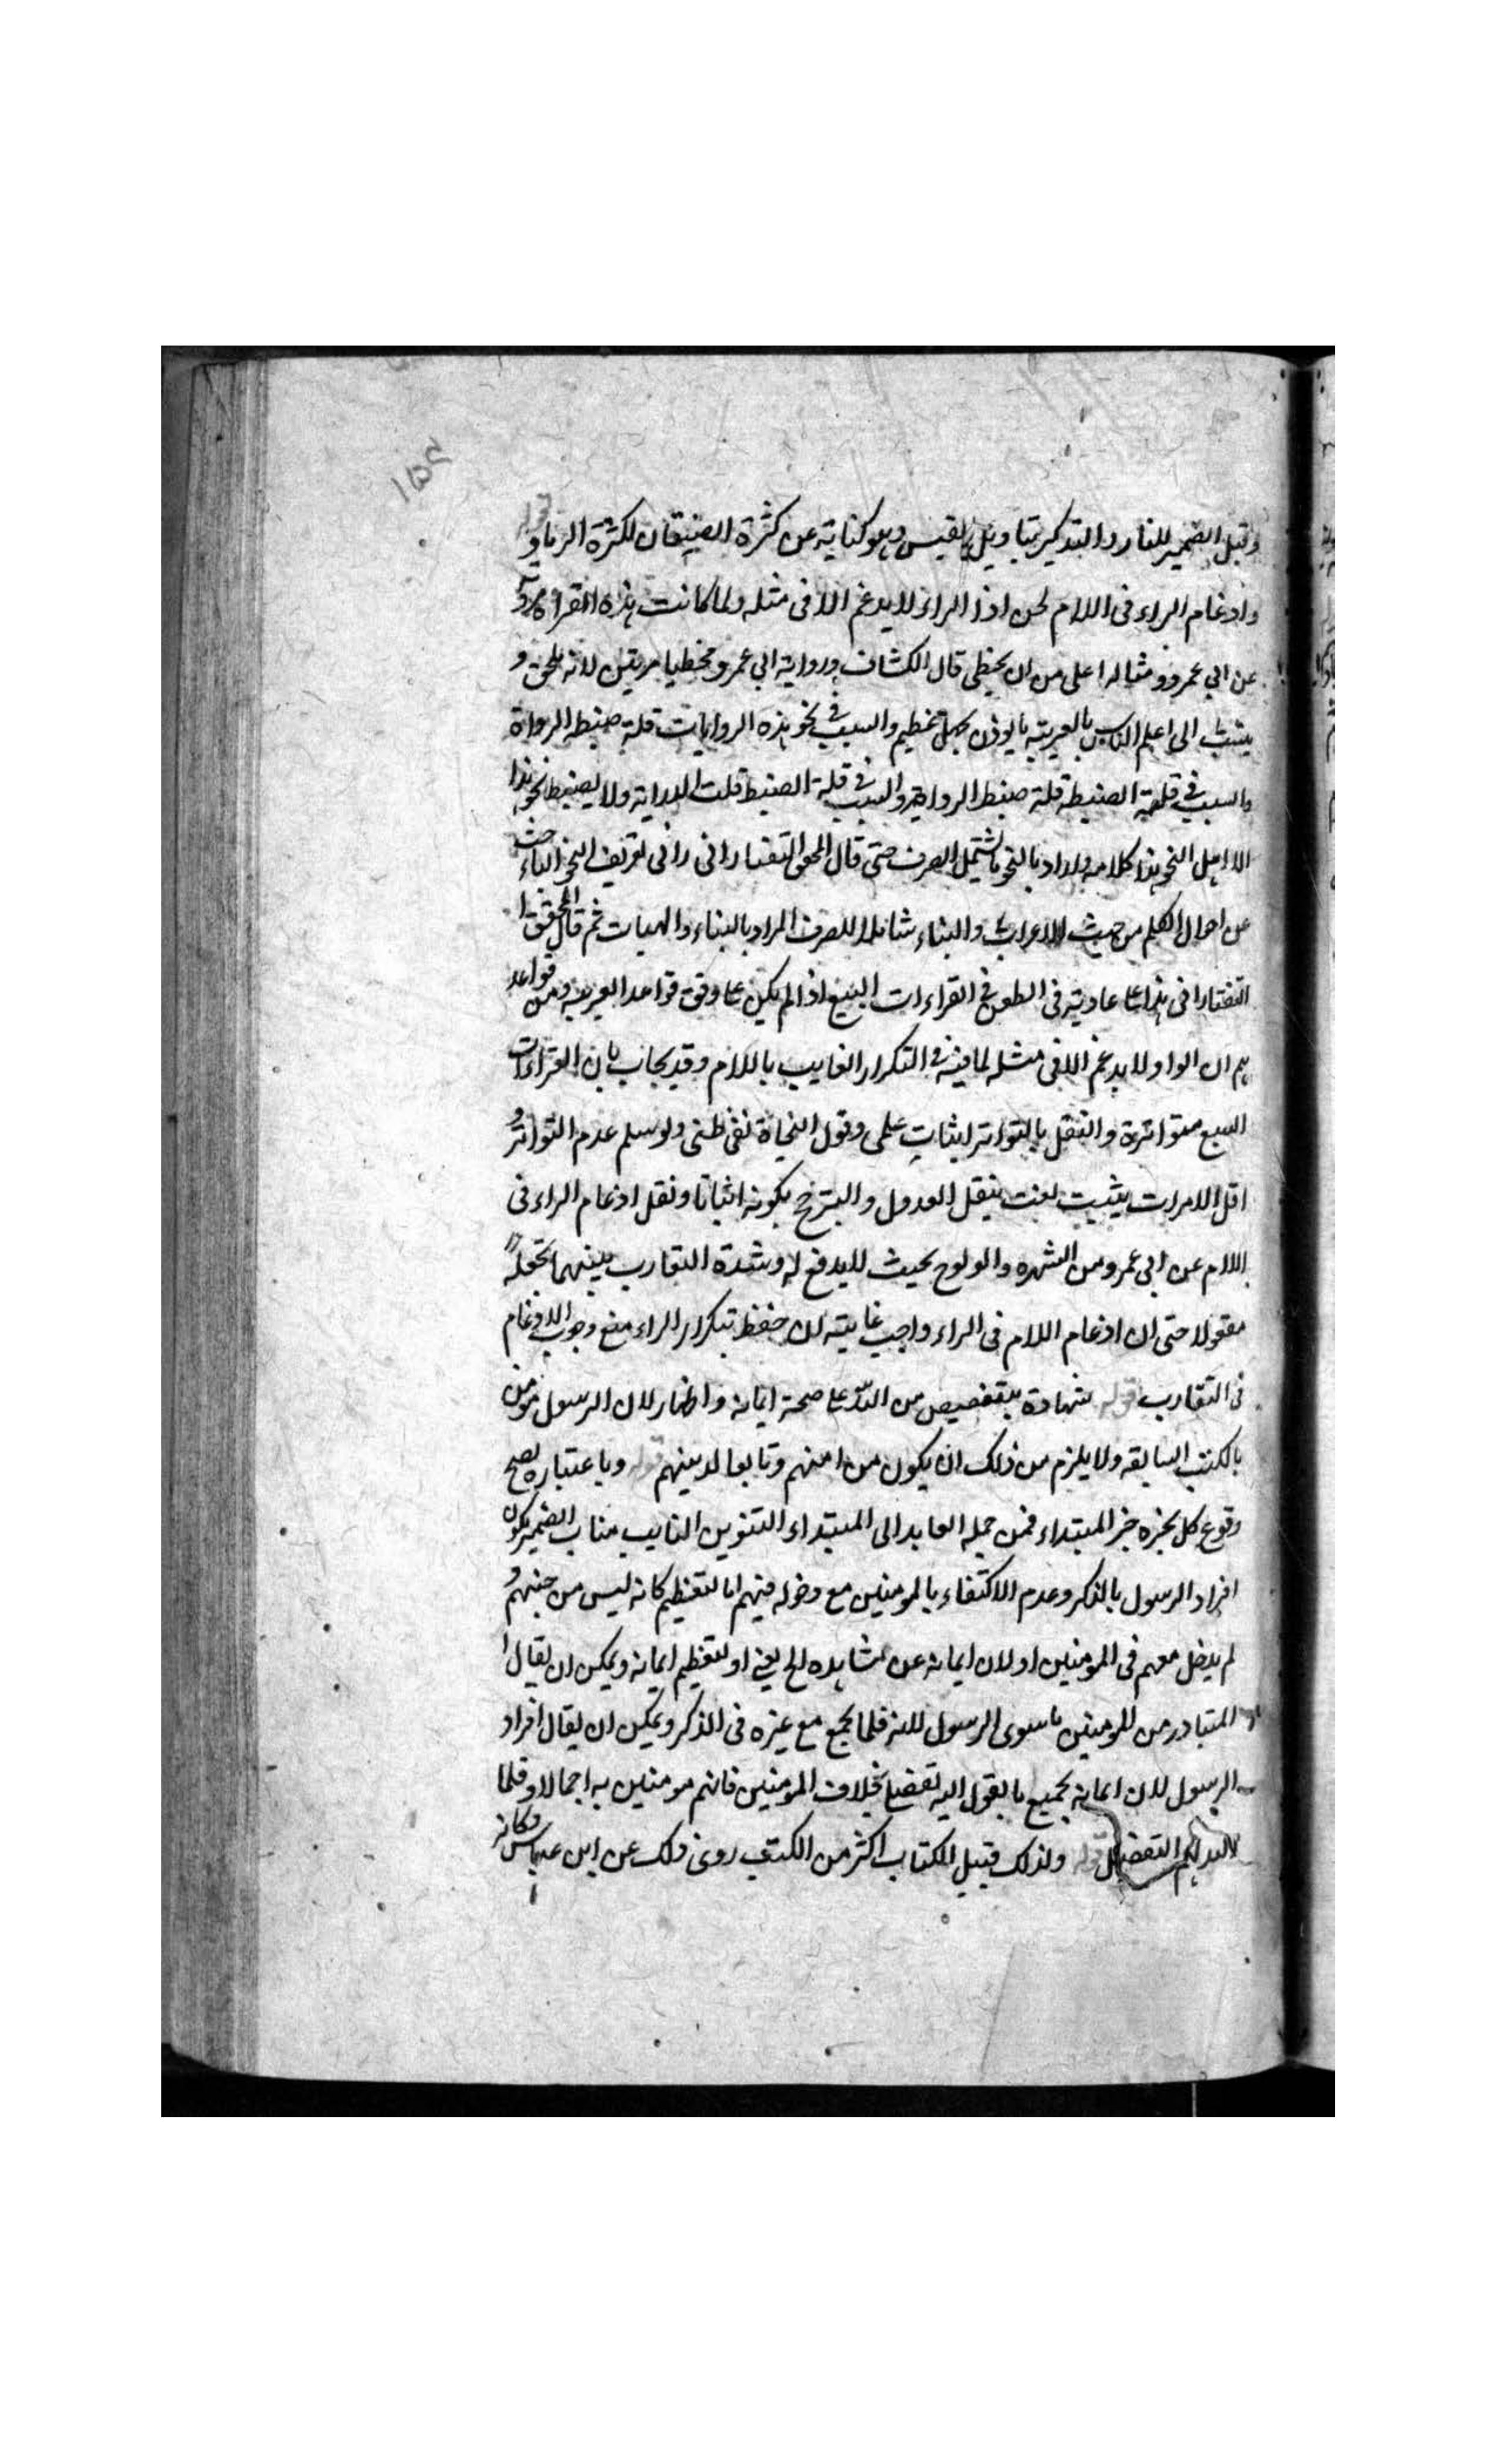 وقيل الضمير للنار والتذكير بتاويل القبس وهو كناية عن كثرة الضيفان لكثرة الرماد قوله
وادغام الراء في اللام لحن اذ الراء لا يدغم الا في مثله ولما كانت هذه القراءة مروية
عن ابي عمرو ومثاله اعلى من ان يخطى قال الكشاف ورواية ابي عمرو مخطيا مرتين لانه يلحن و
ينسب الى اعلم الناس بالعربية ما يوذن بجهل عظيم والسبب في نحو هذه الروايات قلة ضبط الرواة
والسبب في قلة الضبط قلة ضبط الرواية والسبب في قلة الضبط قلت الدراية ولا يضبط نحو هذا
الا اهل النحو هذا كلامه واراد بالنحو ما يشتمل الصرف حتى قال المحقق التفتازاني في تعريف النحو الباحث
عن احوال الكلم من حيث الاعراب والبناء شاملا للصرف المراد بالبناء والهيات ثم قال المحقق
التفتازاني هذا على عادته في الطعن في القراءات السبع اذا لم يكن على وفق قواعد العربية ومن قواعد
هم ان الواو لا يدغم الا في مثله لما فيه في التكرار الغايب باللام وقد يجاب بان القراءات
السبع متواترة والنقل بالتواتر اثبات علمي وقول النحاة نفي ظني ولو سلم عدم التواتر و
اقل الامرات يثبت لغت بنقل العدول والترجح بكونه اثباتا ونقل ادغام الراء في
اللام عن ابي عمرو من الشهره والولوح بحيث لا يدفع له وشدة التقارب بينهما تجعله
مقولا حتى ان ادغام اللام في الراء واجب غايته ان حفظ تكرار الراء منع وجوب الادغام
في التقارب قوله شهادة بتفصيص من الله على صحة ايمانه واظهار لان الرسول مومن
بالكتب السابقه ولا يلزم من ذلك ان يكون من امنهم وتابعا لدينهم قوله وباعتباره يصح
وقوع كل بخبره خبر المبتداء فمن جمله العايد الى المبتداء التنوين النايب مناب الضمير يكون
افراد الرسول بالذكر وعدم الاكتفاء بالمومنين مع دخوله فيهم اما لتعظيم كانه ليس من جنسهم و
لم يدخل معهم في المومنين او لان ايمانه عن مشاهده الخ يعني او لتعظيم ايمانه ويمكن ان يقال ا
المتبادر من المومنين ما سوى الرسول لانه قلما يجمع مع غيره في الذكر ويمكن ان يقال افراد
الرسول لان ايمانه بجميع ما يقول اليه تفصيلا بخلاف المومنين فانهم مومنين به اجمالا وقلما
لهم التفصيل قوله ولذلك قيل الكتاب اكثر من الكتب روى ذلك عن ابن عباس وكانه